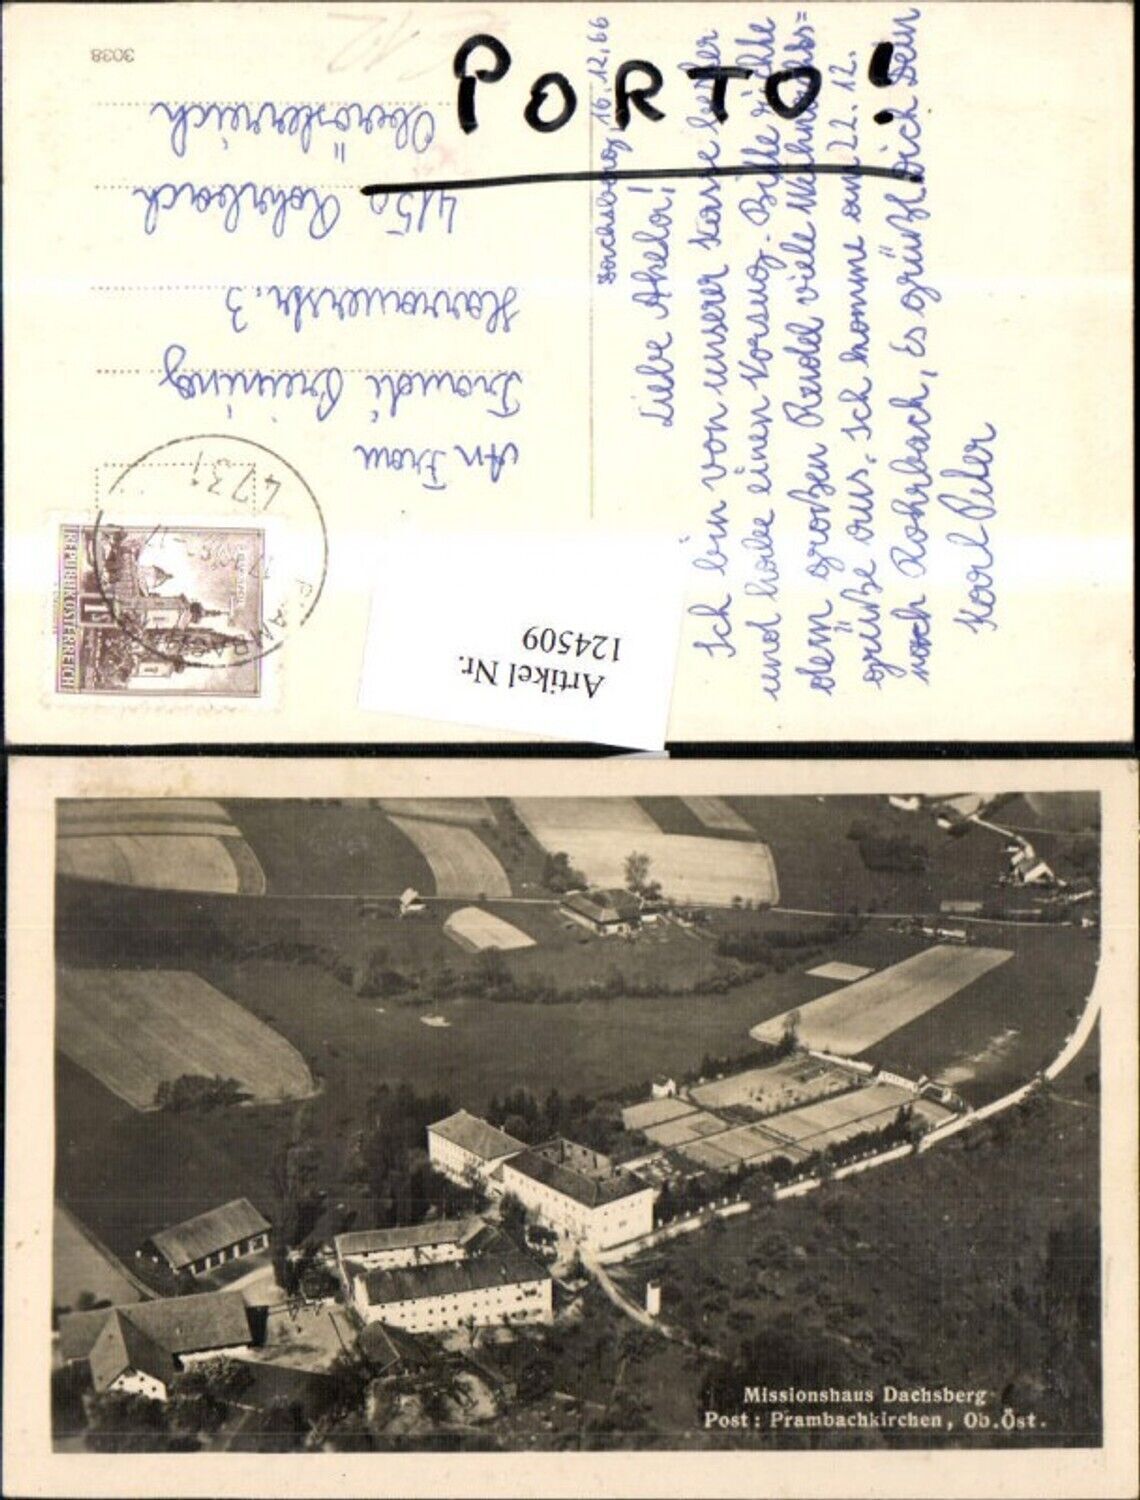 PORTO!
Dachsberg, 16.12.66
Liebe Mama!
Ich bin von unserer Kasse
und habe einen Vorzug. Bitte richte
dem großen Rudel viele Weihnachts=
grüße aus. Ich komme am 22.12.
nach Rohrbach, Es grüßt Dich Dein
Karl Peter
An Frau
Traudi Preining
Harrauerstr. 3
4150 Rohrbach
Oberösterreich
3038
4731
REPUBLIK ÖSTERREICH
1S
Artikel Nr.
124509
Missionshaus Dachsberg
Post: Prambachkirchen, Ob.Öst.